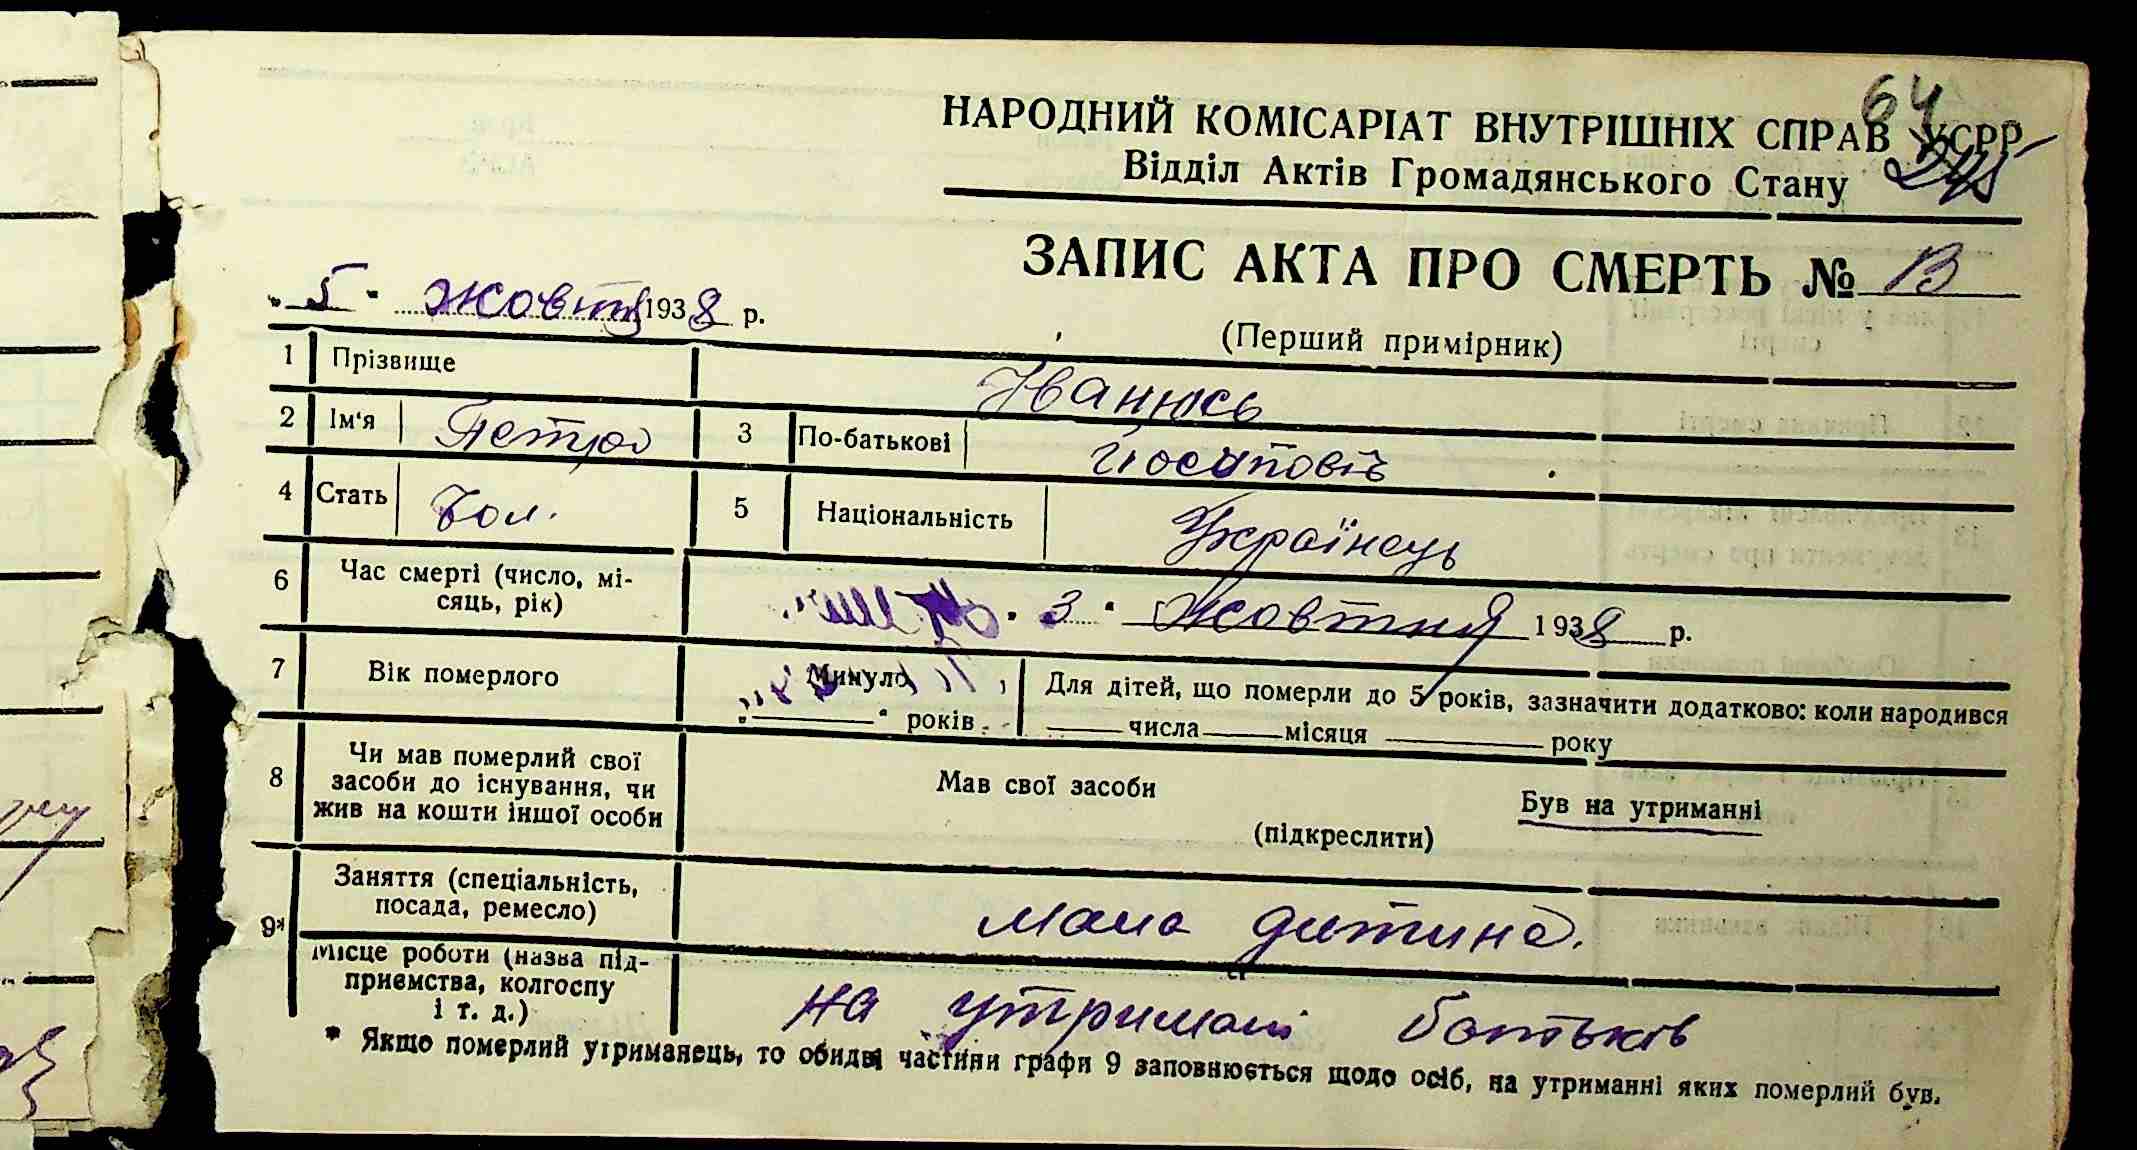 64
НАРОДНИЙ КОМІСАРІАТ ВНУТРІШНІХ СПРАВ УСРР
Відділ Актів Громадянського Стану
ЗАПИС АКТА ПРО СМЕРТЬ № 13
„ 5 " жовтя 1938 р.
(Перший примірник)
1 Прізвище Іванюсь
2 Ім'я Петро 3 По-батькові Йосипович
4 Стать Чол. 5 Національність Українець
6 Час смерті (число, мі-
сяць, рік) „ 3 " жовтня 1938 р.
7 Вік померлого Минуло
„ " років
Для дітей, що померли до 5 років, зазначити додатково: коли народився
числа місяця року
8 Чи мав померлий свої
засоби до існування, чи
жив на кошти іншої особи
Мав свої засоби Був на утриманні
(підкреслити)
9* Заняття (спеціальність,
посада, ремесло) мала дитина.
Місце роботи (назва під-
приємства, колгоспу
і т. д.) на утримані батьків
* Якщо померлий утриманець, то обидві частини графи 9 заповнюється щодо осіб, на утриманні яких померлий був.